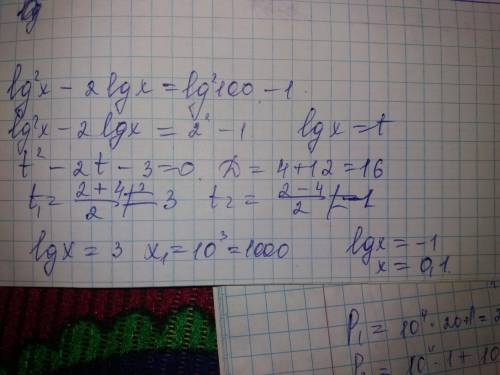 lg²x - 2lgx = lg²100 - 1
lg²x - 2lgx = 2² - 1 lgx = t
t² - 2t - 3 = 0. D = 4+12 = 16
t₁ = (2+4)/2 = 3 t₂ = (2-4)/2 = -1
lgx = 3 x₁ = 10³ = 1000 lgx = -1
x = 0,1
P₁ = 10⁴ · 20
10⁴ · 1 + 10